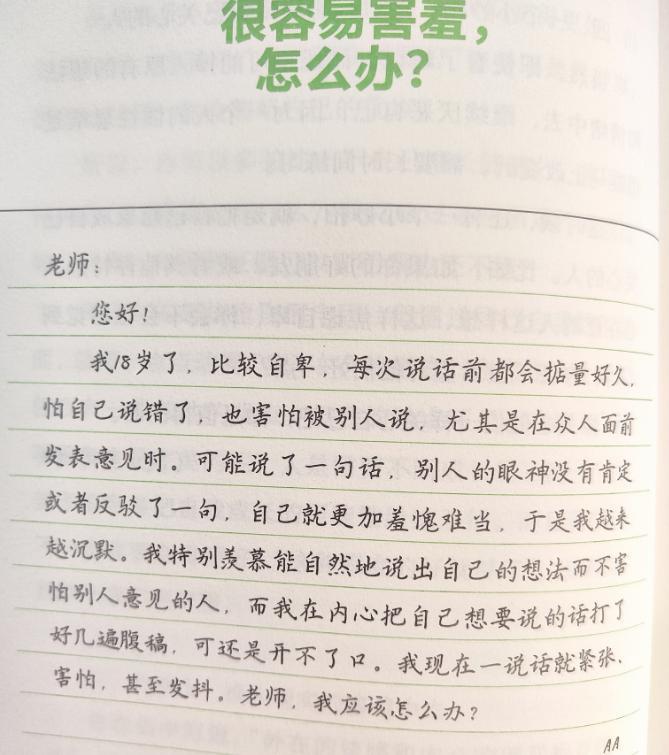 很容易害羞，
怎么办？
老师：
您好！
我18岁了，比较自卑，每次说话前都会掂量好久，
怕自己说错了，也害怕被别人说，尤其是在众人面前
发表意见时。可能说了一句话，别人的眼神没有肯定
或者反驳了一句，自己就更加羞愧难当，于是我越来
越沉默。我特别羡慕能自然地说出自己的想法而不害
怕别人意见的人，而我在内心把自己想要说的话打了
好几遍腹稿，可还是开不了口。我现在一说话就紧张、
害怕，甚至发抖。老师，我应该怎么办？
AA